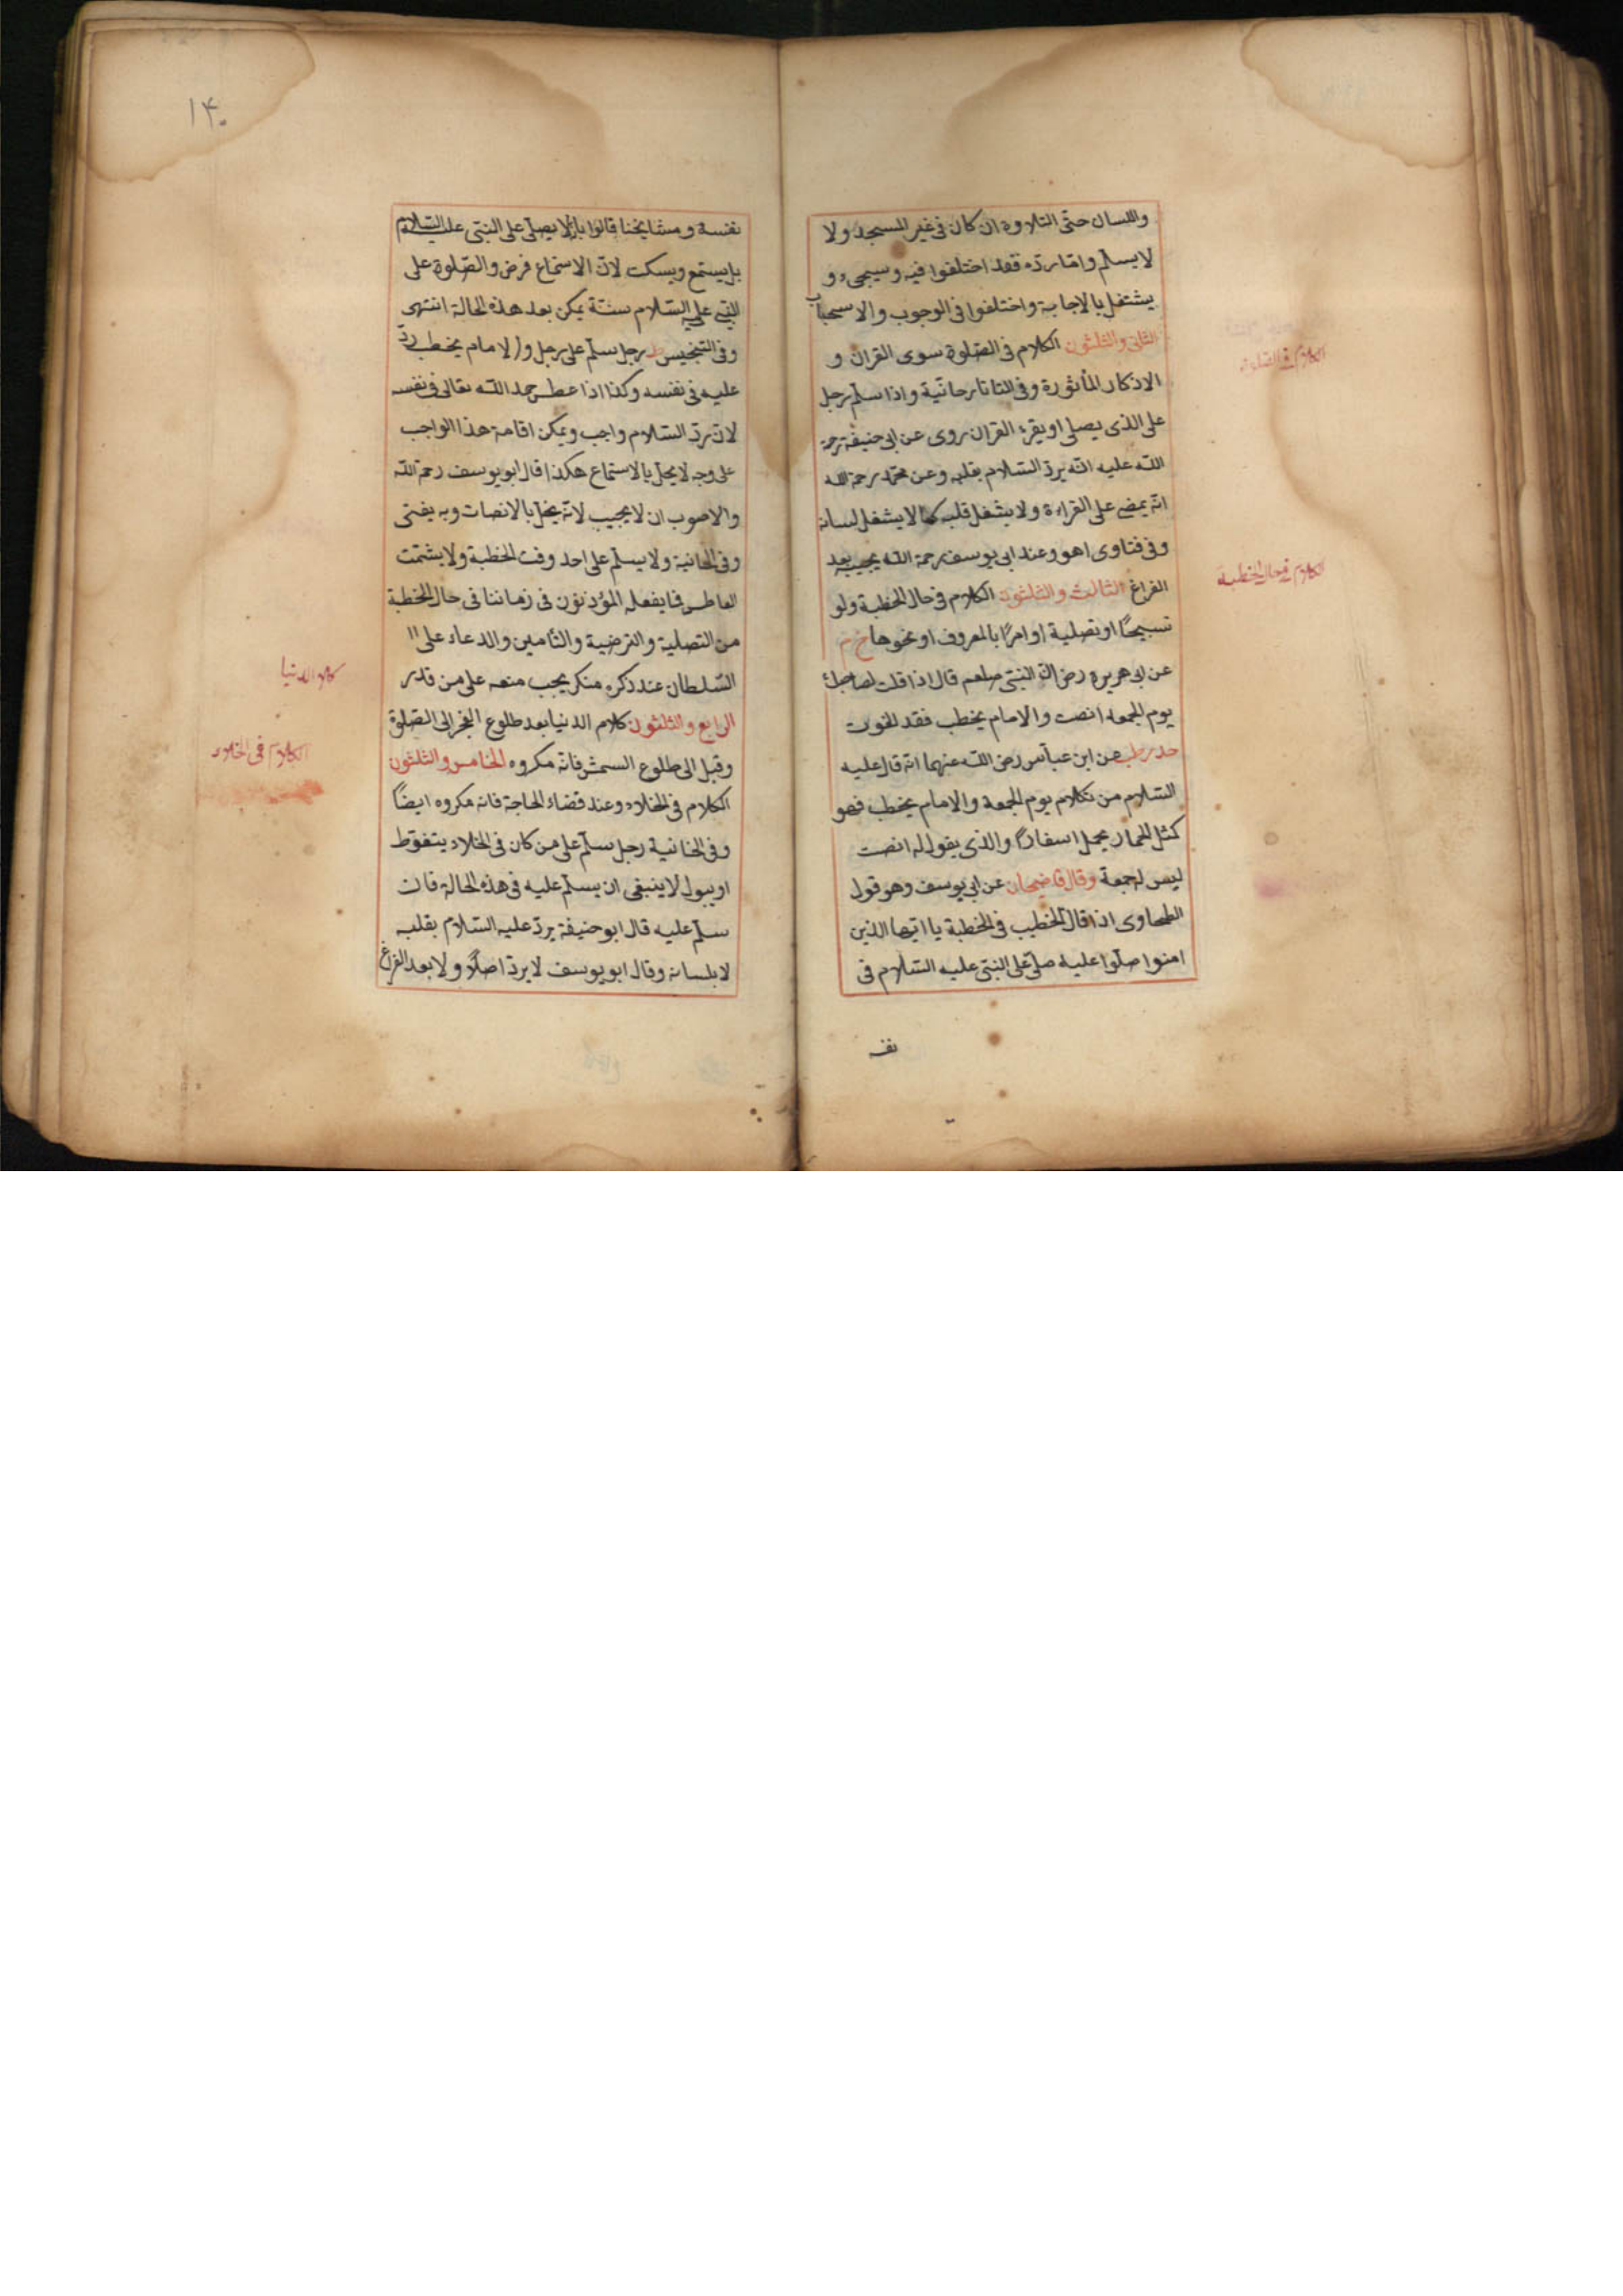 واللسان حتى التلاوة ان كان فى غير المسجد ولا
لا يسلم واما رده فقد اختلفوا فيه وسيجىء و
يشتغل بالاجابة واختلفوا فى الوجوب والاستحباب
الثانى والثلثون الكلام فى الصلوة سوى القران و
الاذكار المأثورة وفى التاتارخانية واذا سلم رجل
على الذى يصلى او يقرء القران روى عن ابى حنيفة رحمة
الله عليه انه يرد السلام بقلبه وعن محمد رحمة الله
انه يمضى على القراءة ولا يشغل قلبه كما لا يشغل لسانه
وفى فتاوى اهو وعند ابى يوسف رحمة الله يجيبه بعد
الفراغ الثالث والثلثون الكلام فى حال الخطبة ولو
تسبيحًا او تصلية او امرًا بالمعروف او نحوها خ م
عن ابى هريره رض ان النبى صلعم قال اذا قلت لصاحبك
يوم الجمعه انصت والامام يخطب فقد لغوت
حد رطب عن ابن عباس رضى الله عنهما انه قال عليه
السلام من تكلام يوم الجمعة والامام يخطب فهو
كمثل الحمار يحمل اسفارًا والذى يقول له انصت
ليس له جمعة وقال قاضيخان عن ابى يوسف وهو قول
الطحاوى اذا قال الخطيب فى الخطبة يا ايها الذين
امنوا صلوا عليه صلى على النبى عليه السلام فى
نفـ
الكلام فى الصلوة
الكلام فى حال الخطبة
١٤٠
نفسه ومشايخنا قالوا بانه لا يصلى على النبى عليه السلام
بل يستمع ويسكت لان الاستماع فرض والصلوة على
النبى عليه السلام سنة يمكن بعد هذه الحالة انتهى
وفى التجنيس رجل سلم على رجل والامام يخطب ردّ
عليه فى نفسه وكذا اذا عطس حمد الله تعالى فى نفسه
لان رد السلام واجب ويمكن اقامة هذا الواجب
على وجه لا يخل بالاستماع هكذا قال ابو يوسف رحمة الله
والاصوب ان لا يجيب لانه يخل بالانصات وبه يفتى
وفى الخانية ولا يسلم على احد وقت الخطبة ولا يشمت
العاطس فما يفعله المؤذنون فى زماننا فى حال الخطبة
من التصلية والترضية والتأمين والدعاء على
السلطان عند ذكره منكر يجب منعه على من قدر
الرابع والثلثون كلام الدنيا بعد طلوع الفجر الى الصلوة
وقيل الى طلوع السمش فانه مكروه الخامس والثلثون
الكلام فى الخلاء وعند قضاء الحاجة فانه مكروه ايضًا
وفى الخانية رجل سلم على من كان فى الخلاء يتغوط
او يبول لا ينبغى ان يسلم عليه فى هذه الحالة فان
سلم عليه قال ابو حنيفة يرد عليه السلام بقلبه
لا بلسانه وقال ابو يوسف لا يرد اصلًا ولا بعد الفراغ
كلام الدنيا
الكلام فى الخلاء